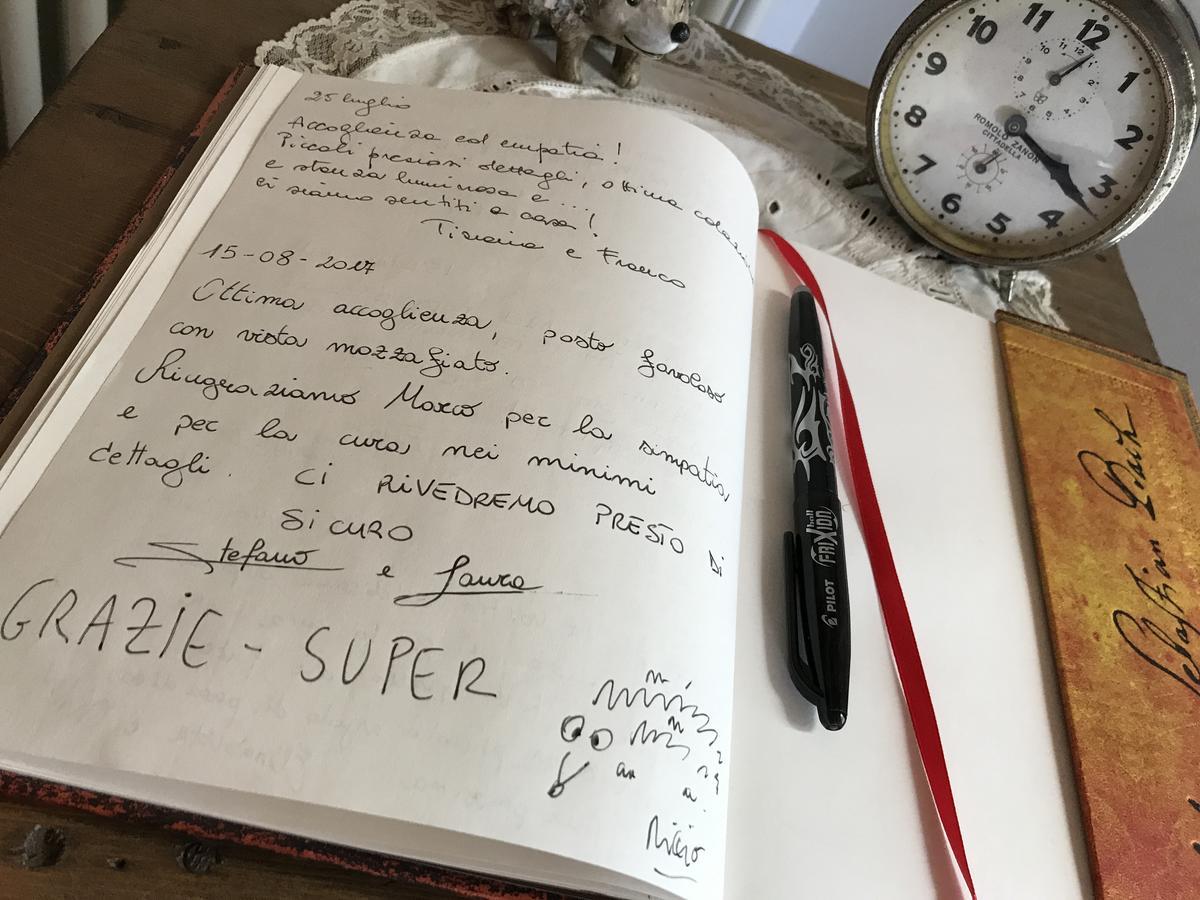 25 luglio
Accoglienza ed empatia!
Piccoli preziosi dettagli, ottima colazione
e stanza luminosa e ...!
ci siamo sentiti a casa!
Tiziana e Franco
15-08-2017
Ottima accoglienza, posto favoloso
con vista mozzafiato.
Ringraziamo Marco per la simpatia,
e per la cura nei minimi
dettagli. Ci RiVEDREMO PRESTO Di
SiCURO
Stefano e Laura
GRAZiE - SUPER
Riccio
12
11
10
9
8
7
6
5
4
3
2
1
ROMOLO ZANON
CITTADELLA
PILOT FRIXION ball
Sebastian Bach